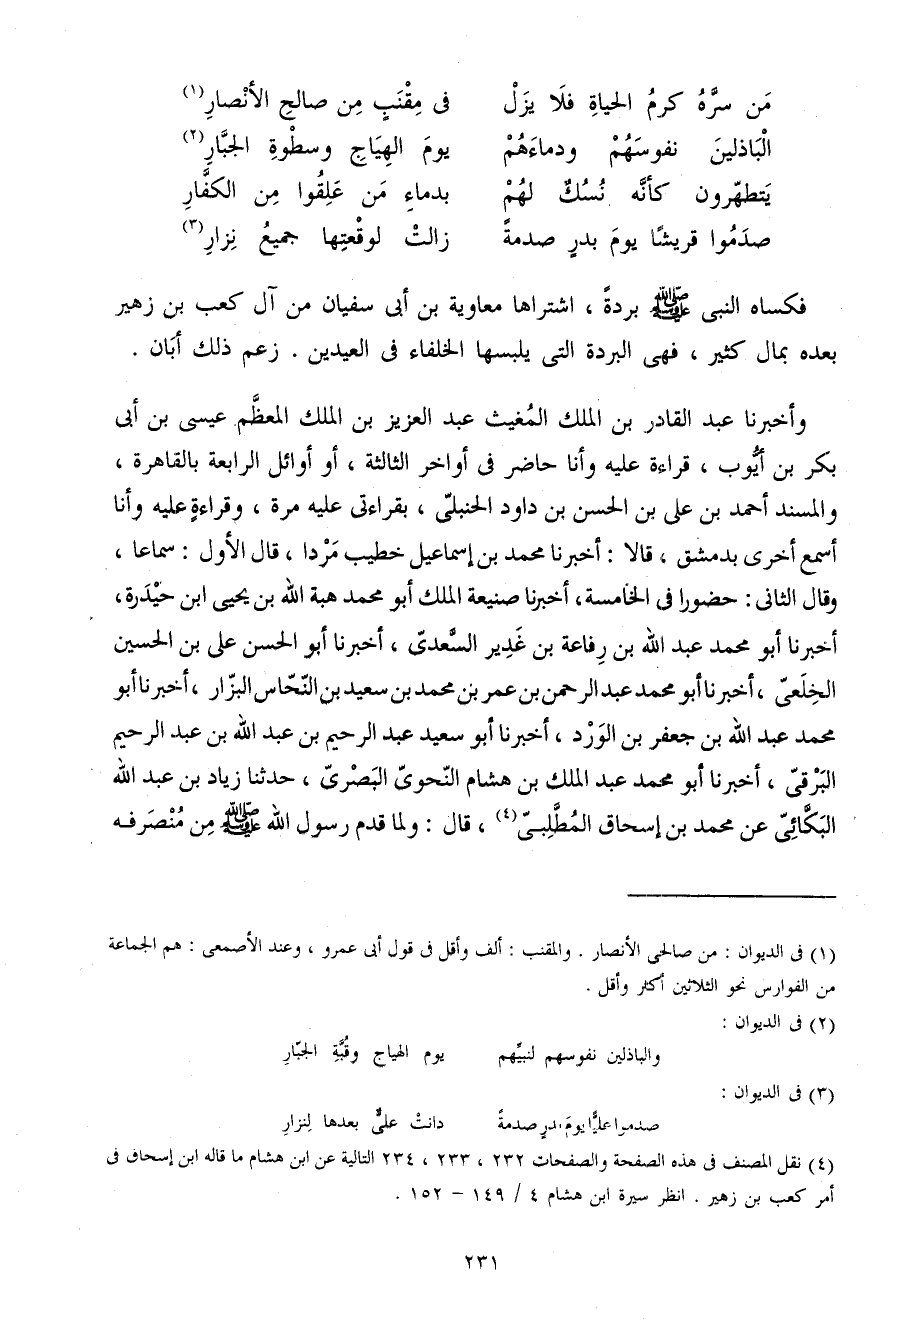 مَن سرَّهُ كرمُ الحياةِ فلَا يزَلْ فى مِقْنَبٍ مِن صالحِ الأنْصارِ(١)
الْبَاذلينَ نفوسَهُمْ ودماءَهُمْ يومَ الهِيَاجِ وسطْوةِ الجبَّارِ(٢)
يَتطهّرون كأنَّه نُسُكٌ لهُمْ بدماءِ مَن عَلِقُوا مِن الكفَّارِ
صدَمُوا قريشًا يومَ بدرٍ صدمةً زالتْ لوقْعتِها جميعُ نِزارِ(٣)
فكساه النبى ﷺ بردةً ، اشتراها معاوية بن أبى سفيان من آل كعب بن زهير
بعده بمال كثير ، فهى البردة التى يلبسها الخلفاء فى العيدين . زعم ذلك أبَان .
وأخبرنا عبد القادر بن الملك المُغيث عبد العزيز بن الملك المعظَّم عيسى بن أبى
بكر بن أيُّوب ، قراءة عليه وأنا حاضر فى أواخر الثالثة ، أو أوائل الرابعة بالقاهرة ،
والمسند أحمد بن على بن الحسن بن داود الحنبلىّ ، بقراءتى عليه مرة ، وقراءةٍ عليه وأنا
أسمع أخرى بدمشق ، قالا : أخبرنا محمد بن إسماعيل خطيب مَرْدا ، قال الأول : سماعا ،
وقال الثانى : حضورا فى الخامسة، أخبرنا صنيعة الملك أبو محمد هبة الله بن يحيى ابن حَيْدَرة،
أخبرنا أبو محمد عبد الله بن رِفاعة بن غَدِير السَّعدىّ ، أخبرنا أبو الحسن على بن الحسين
الخِلَعىّ ، أخبرنا أبو محمد عبد الرحمن بن عمر بن محمد بن سعيد بن النّحّاس البزّار ، أخبرنا أبو
محمد عبد الله بن جعفر بن الوَرْد ، أخبرنا أبو سعيد عبد الرحيم بن عبد الله بن عبد الرحيم
البَرْقىّ ، أخبرنا أبو محمد عبد الملك بن هشام النّحوىّ البَصْرىّ ، حدثنا زياد بن عبد الله
البَكَّائىّ عن محمد بن إسحاق المُطَّلِبىّ(٤) ، قال : ولما قدم رسول الله ﷺ مِن مُنْصَرَفه
(١) فى الديوان : من صالحى الأنصار . والمقنب : ألف وأقل فى قول أبى عمرو ، وعند الأصمعى : هم الجماعة
من الفوارس نحو الثلاثين أكثر وأقل .
(٢) فى الديوان :
والباذلين نفوسهم لنبيِّهم يوم الهياج وقُبَّةِ الجبّارِ
(٣) فى الديوان :
صدموا عليًّا يومَ بدرٍ صدمةً دانتْ علىٌّ بعدها لِنزارِ
(٤) نقل المصنف فى هذه الصفحة والصفحات ٢٣٢ ، ٢٣٣ ، ٢٣٤ التالية عن ابن هشام ما قاله ابن إسحاق فى
أمر كعب بن زهير . انظر سيرة ابن هشام ٤ / ١٤٩ – ١٥٢ .
٢٣١